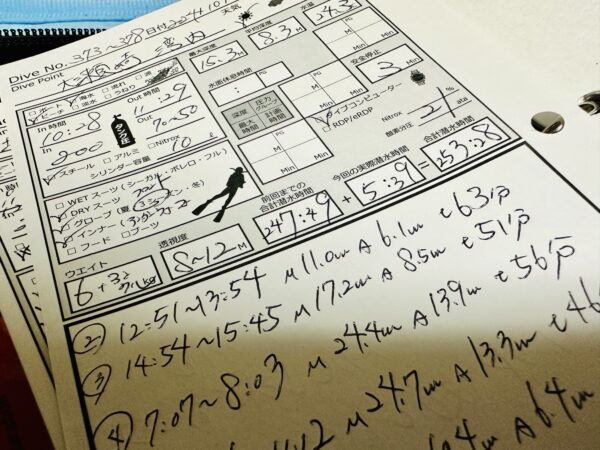 Dive No. 373~378 日付 2024.10 天気
Dive Point 大瀬崎 湾内
最大深度 15.3M 平均深度 8.3M 水温 24.3
□ボート □海水 □流れ □波
□ビーチ □淡水 □うねり
In時間 10:28 Out時間 11:29
200 タンク圧 70~50
□スチール □アルミ □Nitrox
シリンダー容量 10ℓ
水面休息時間 :
深度 圧力グループ
最大時間 計画時間
PG Min
PG Min Min
M Min
安全停止 3 Min
□ダイブコンピューター
□RDP/eRDP
Nitrox 21 %
酸素分圧 ata
□WETスーツ (シーガル・ボレロ・フル)
□DRYスーツ
□グローブ (夏・3シーズン・冬)
□インナー
□フード □ブーツ
ウエイト 6+ kg
透視度 8~12M
前回までの合計潜水時間 247:49 + 今回の実際潜水時間 5:39 = 合計潜水時間 253:28
② 12:51~13:54 M11.0m A 6.1m t 63分
③ 14:54~15:45 M17.2m A 8.5m t 51分
④ 7:07~8:03 M24.4m A 13.9m t 56分
M24.7m A 13.3m t 46
A 6.4m